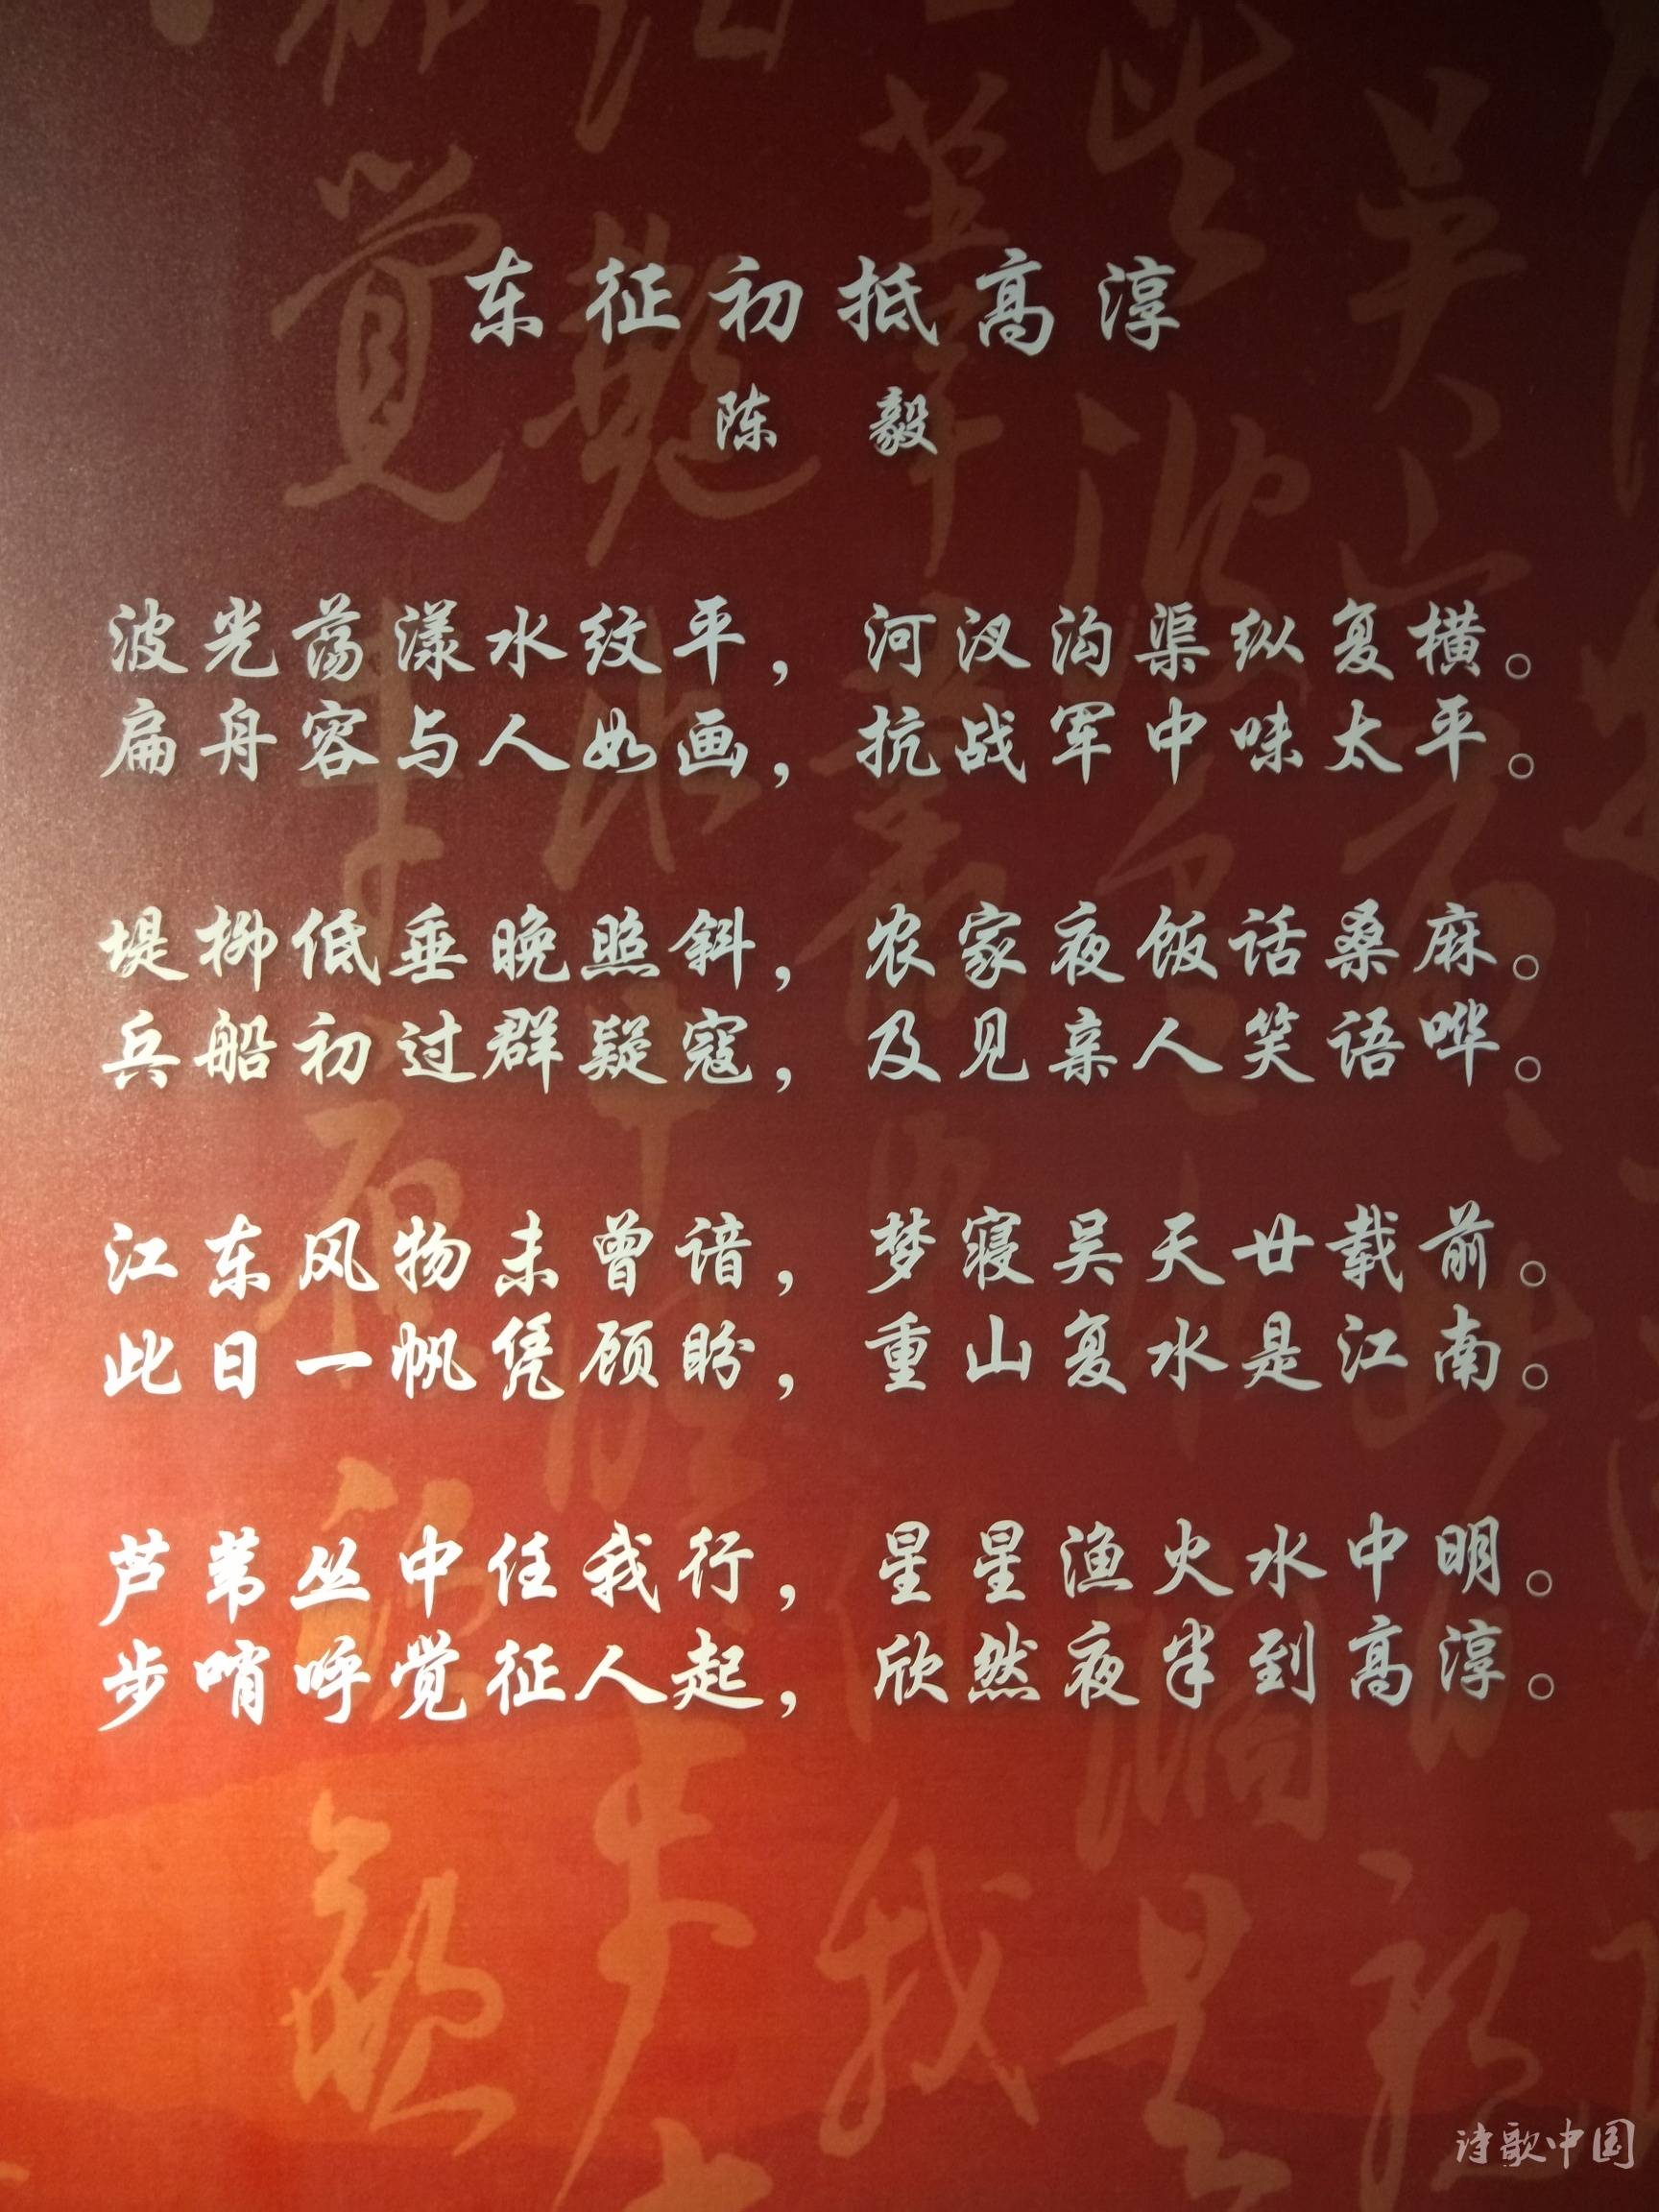 东征初抵高淳
陈 毅
波光荡漾水纹平，河汊沟渠纵复横。
扁舟容与人如画，抗战军中味太平。
堤柳低垂晚照斜，农家夜饭话桑麻。
兵船初过群疑寇，及见亲人笑语哗。
江东风物未曾谙，梦寝吴天廿载前。
此日一帆凭顾盼，重山复水是江南。
芦苇丛中任我行，星星渔火水中明。
步哨呼觉征人起，欣然夜半到高淳。
诗歌中国